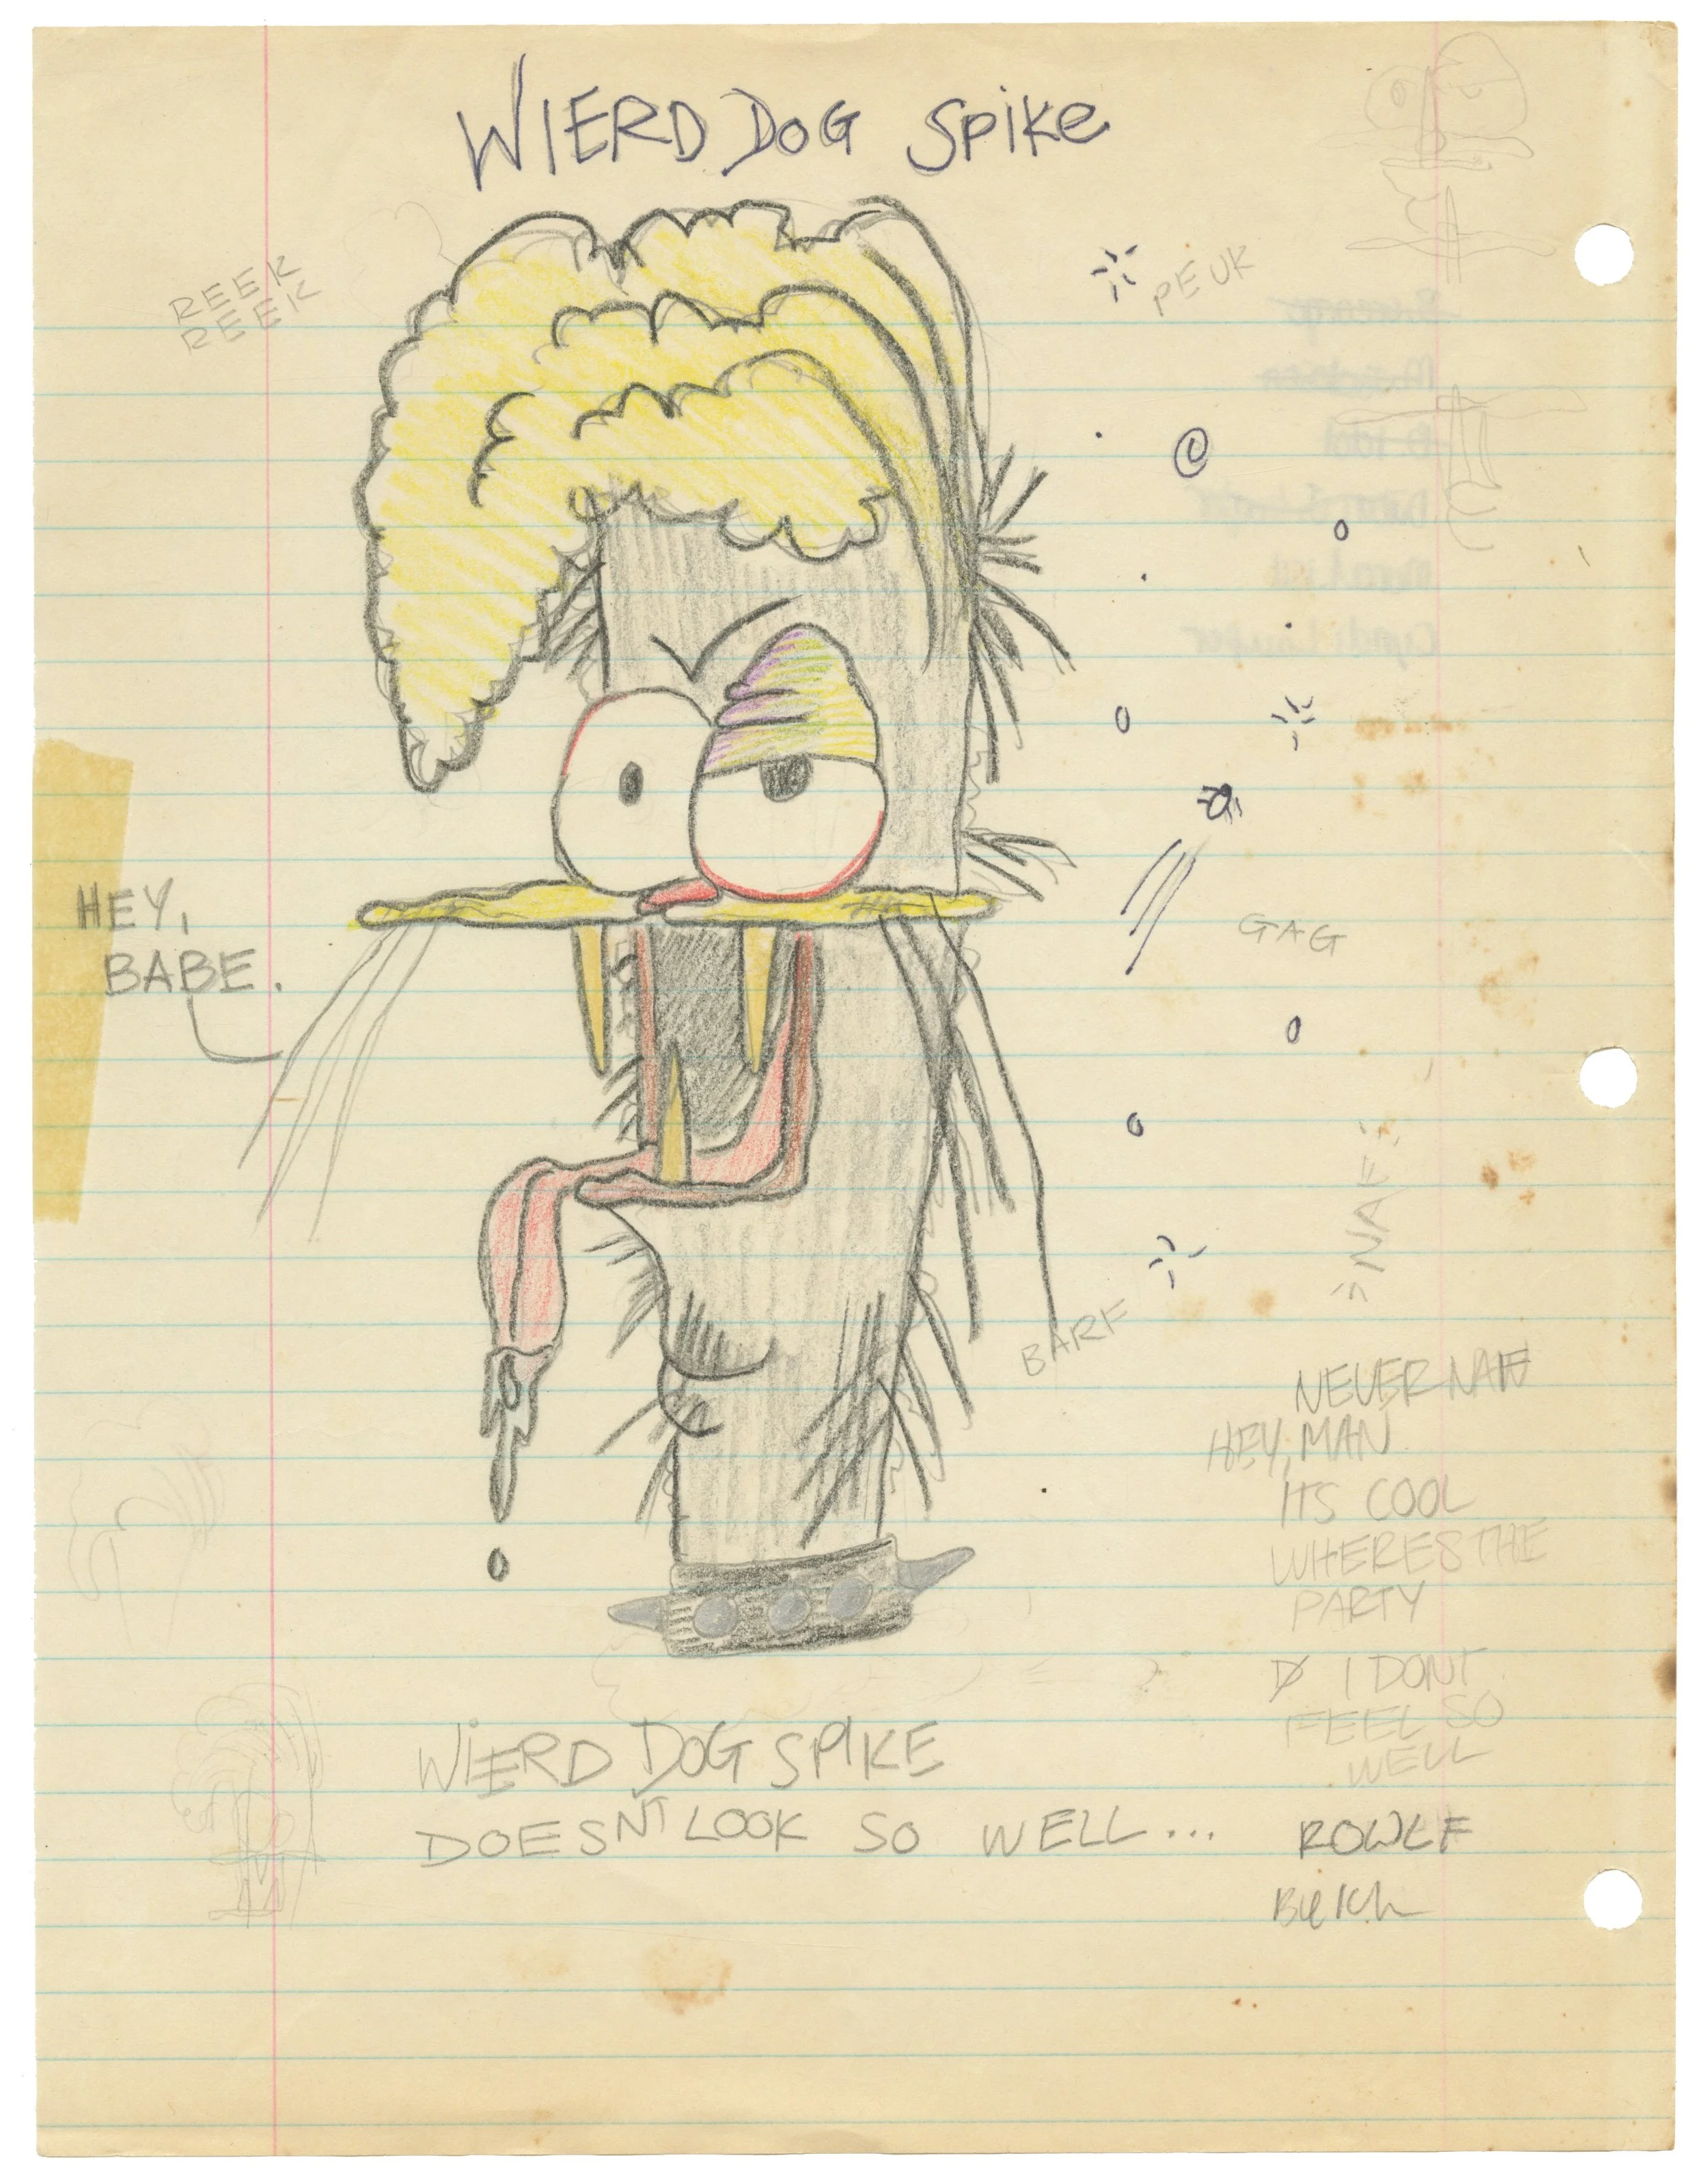 WIERD DOG SPIKE
REEK
REEK
PEUK
HEY,
BABE.
GAG
NAF
BARF
NEVER NAF
HEY, MAN
ITS COOL
WHERES THE
PARTY
I DONT
FEEL SO
WELL
WIERD DOG SPIKE
DOESNT LOOK SO WELL...
ROWLF
Belch